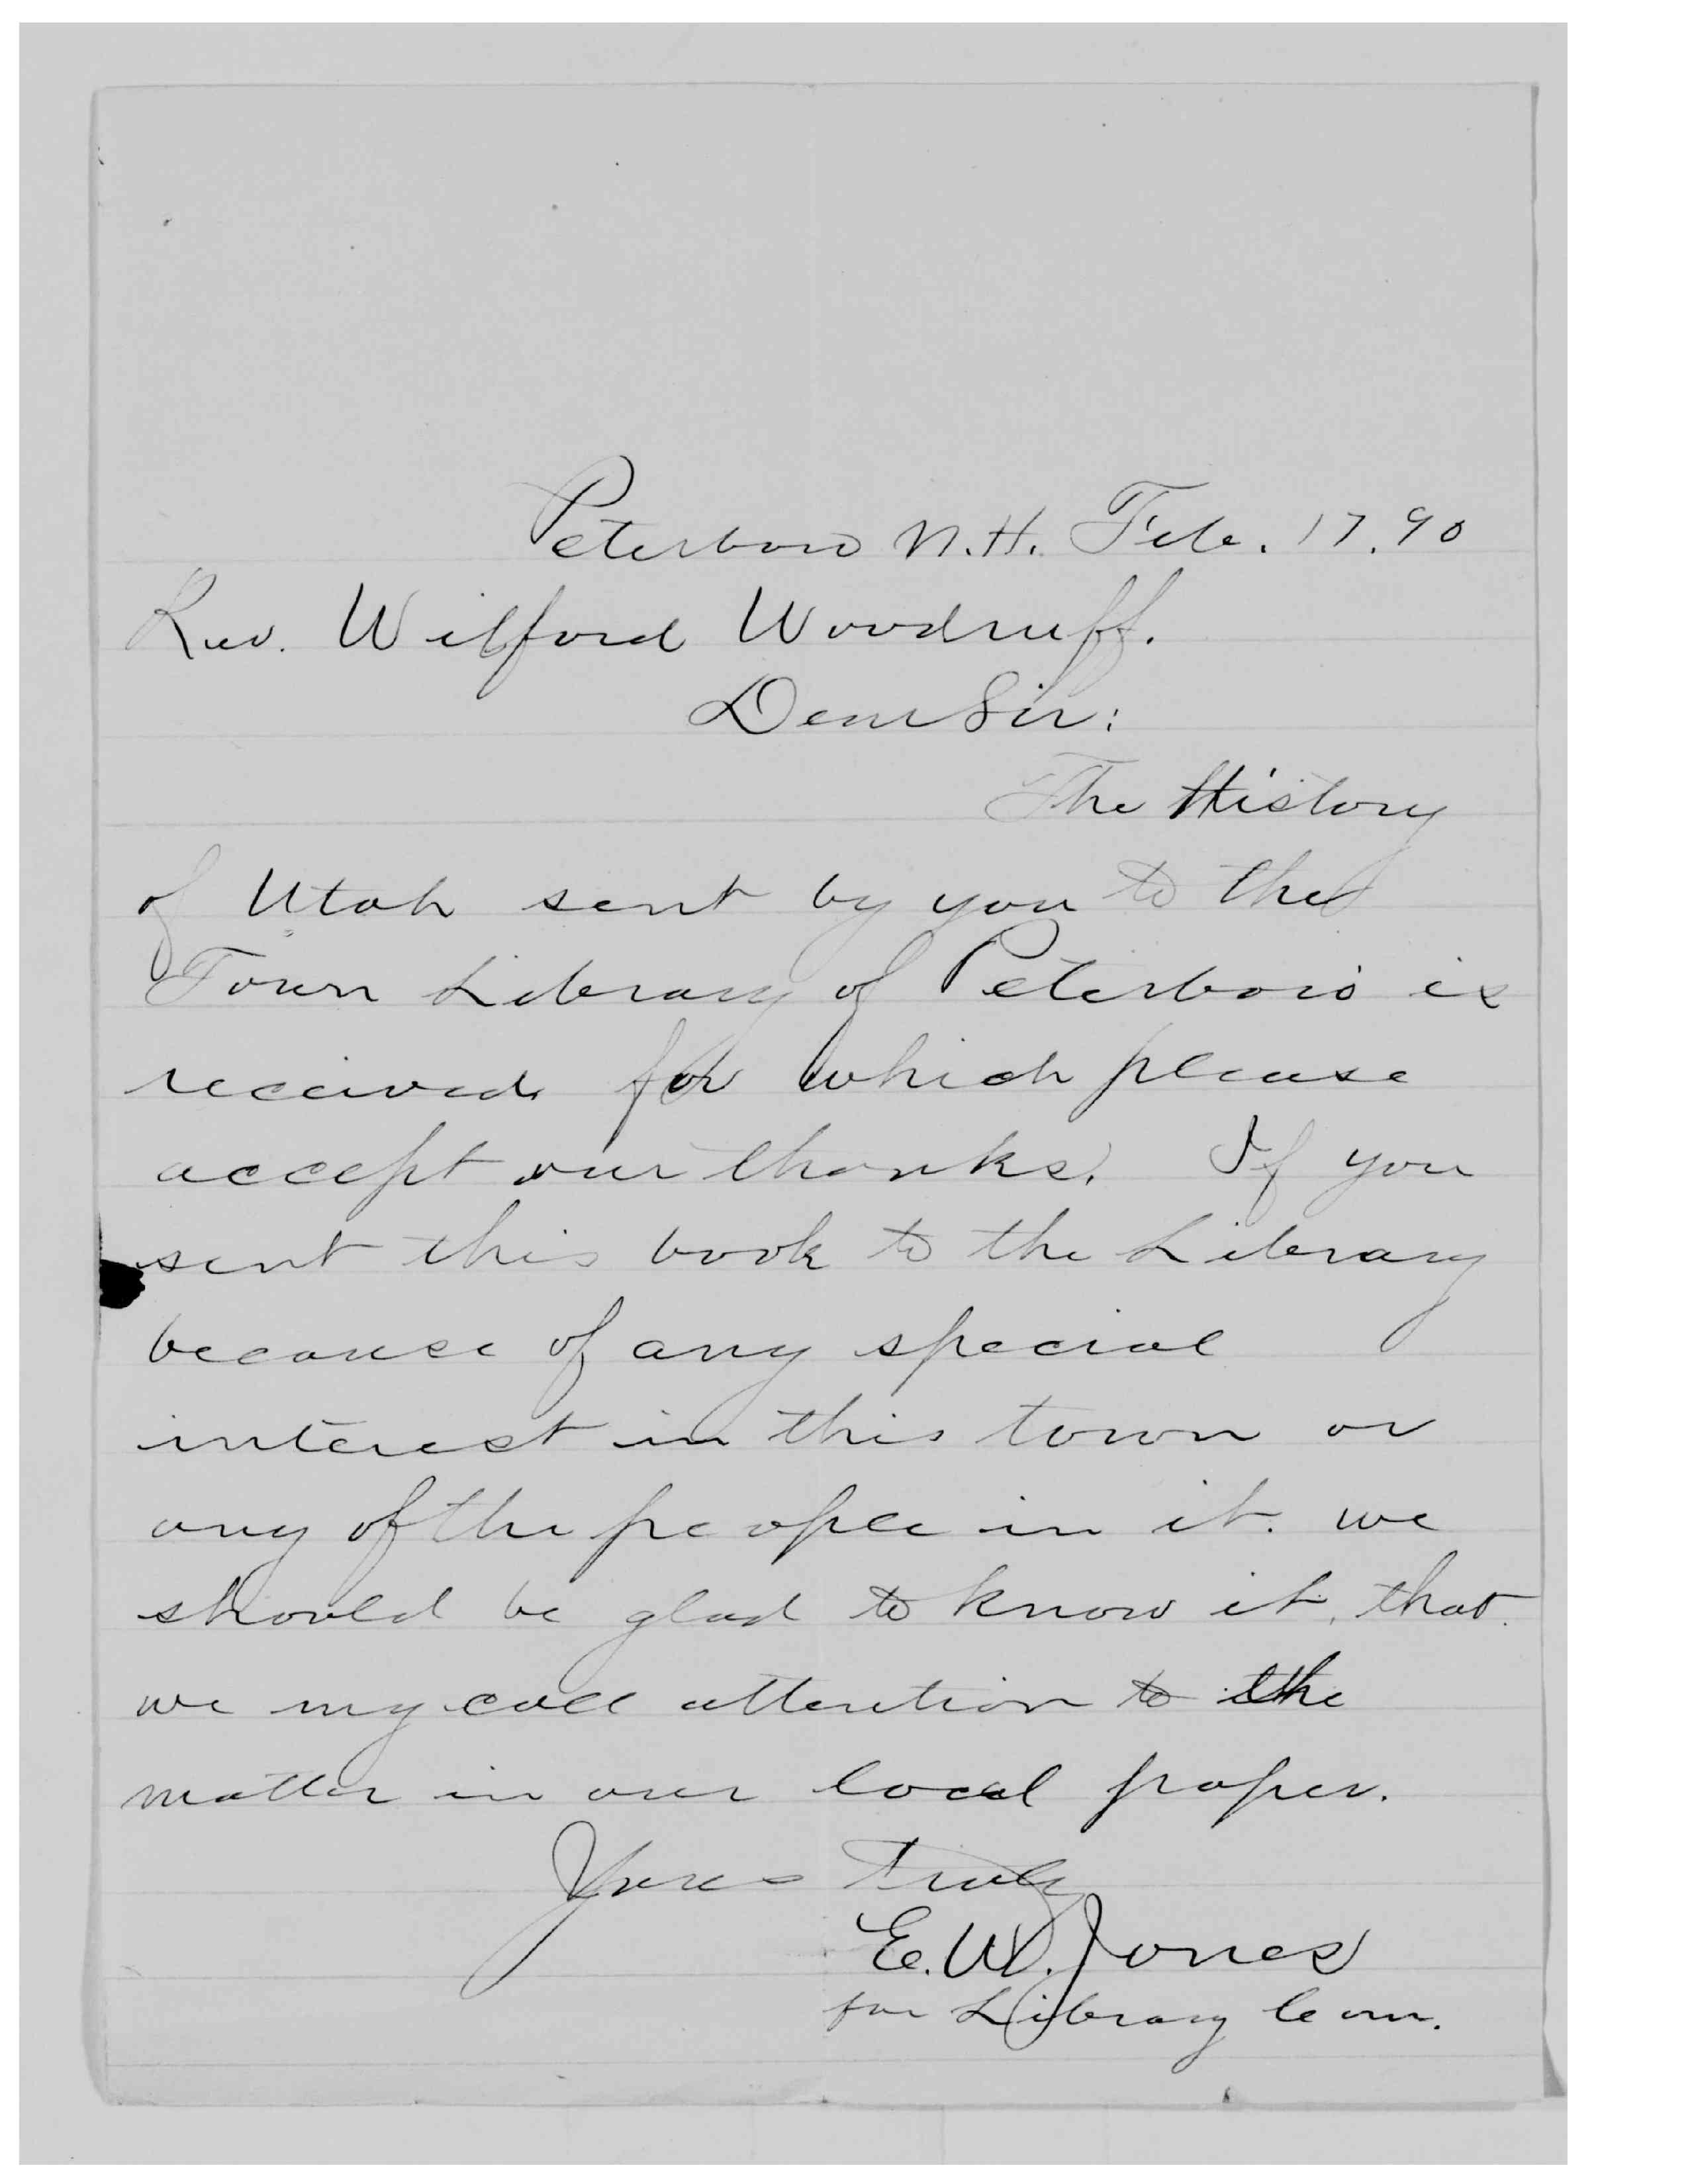 Peterboro N.H. Feb. 17. 90
Rev. Wilford Woodruff.
Dear Sir:
The History
of Utah sent by you to the
Town Library of Peterboro' is
received for which please
accept our thanks. If you
sent this book to the Library
because of any special
interest in this town or
any of the people in it. we
should be glad to know it, that
we my call attention to the
matter in our local paper.
Yours Truly
E. W. Jones
for Library Com.